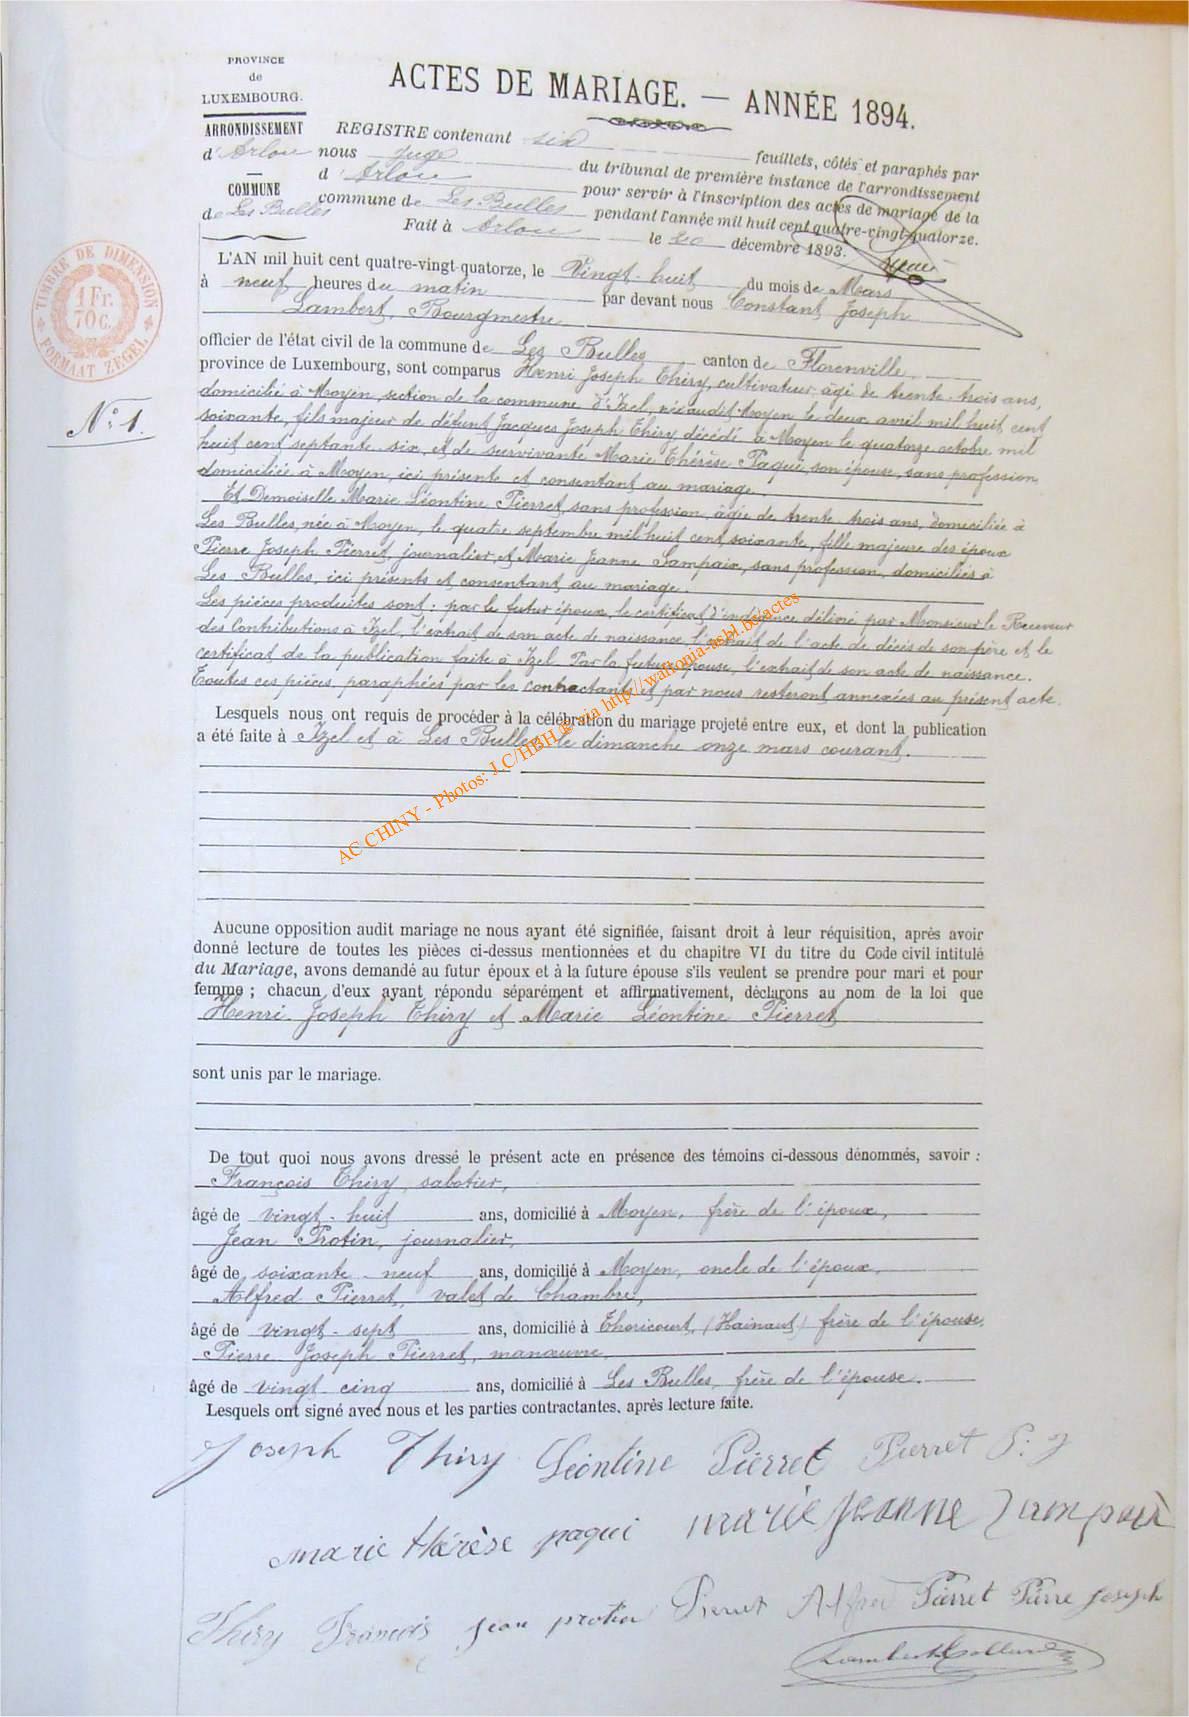 PROVINCE
de
LUXEMBOURG.
ARRONDISSEMENT
d'Arlon
COMMUNE
de Les Bulles
ACTES DE MARIAGE. — ANNÉE 1894.
REGISTRE contenant six feuillets, côtés et paraphés par
nous juge du tribunal de première instance de l'arrondissement
d'Arlon pour servir à l'inscription des actes de mariage de la
commune de Les Bulles pendant l'année mil huit cent quatre-vingt-quatorze.
Fait à Arlon le 20 décembre 1893.
TIMBRE DE DIMENSION
1 Fr.
70 c.
FORMAAT ZEGEL
N° 1.
L'AN mil huit cent quatre-vingt-quatorze, le Vingt-huit du mois de Mars
à neuf heures du matin par devant nous Constant Joseph
Lambert, Bourgmestre
officier de l'état civil de la commune de Les Bulles canton de Florenville,
province de Luxembourg, sont comparus Henri Joseph Thiry, cultivateur, âgé de trente-trois ans,
domicilié à Moyen, section de la commune d'Izel, né audit Moyen le deux avril mil huit cent
soixante, fils majeur de défunt Jacques Joseph Thiry décédé à Moyen le quatorze octobre mil
huit cent septante six, et de survivante Marie Thérèse Paqui, son épouse, sans profession
domiciliée à Moyen, ici présente et consentant au mariage.
Et Demoiselle Marie Léontine Pierret, sans profession, âgée de trente trois ans, domiciliée à
Les Bulles, née à Moyen, le quatre septembre mil huit cent soixante, fille majeure des époux
Pierre Joseph Pierret, journalier, et Marie Jeanne Lampaix, sans profession, domiciliés à
Les Bulles, ici présents et consentant au mariage.
Les pièces produites sont : par le futur époux, le certificat d'indigence délivré par Monsieur le Receveur
des Contributions à Izel, l'extrait de son acte de naissance, l'extrait de l'acte de décès de son père et le
certificat de la publication faite à Izel. Par la future épouse, l'extrait de son acte de naissance.
Toutes ces pièces, paraphées par les contractants et par nous resteront annexées au présent acte.
Lesquels nous ont requis de procéder à la célébration du mariage projeté entre eux, et dont la publication
a été faite à Izel et à Les Bulles, le dimanche onze mars courant.
AC CHINY - Photos: J.C/HBH © via http://wallonia-asbl.be/actes
Aucune opposition audit mariage ne nous ayant été signifiée, faisant droit à leur réquisition, après avoir
donné lecture de toutes les pièces ci-dessus mentionnées et du chapitre VI du titre du Code civil intitulé
du Mariage, avons demandé au futur époux et à la future épouse s'ils veulent se prendre pour mari et pour
femme ; chacun d'eux ayant répondu séparément et affirmativement, déclarons au nom de la loi que
Henri Joseph Thiry et Marie Léontine Pierret
sont unis par le mariage.
De tout quoi nous avons dressé le présent acte en présence des témoins ci-dessous dénommés, savoir :
François Thiry, sabotier,
âgé de vingt-huit ans, domicilié à Moyen, frère de l'époux,
Jean Protin, journalier,
âgé de soixante-neuf ans, domicilié à Moyen, oncle de l'époux,
Alfred Pierret, valet de Chambre,
âgé de vingt-sept ans, domicilié à Thoricourt, (Hainaut) frère de l'épouse,
Pierre Joseph Pierret, manœuvre,
âgé de vingt cinq ans, domicilié à Les Bulles, frère de l'épouse.
Lesquels ont signé avec nous et les parties contractantes, après lecture faite.
Joseph Thiry Léontine Pierret Pierret P: J
marie thérèse paqui marie Jeanne Lampaix
Thiry François jean protin Pierret Alfred Pierret Pierre Joseph